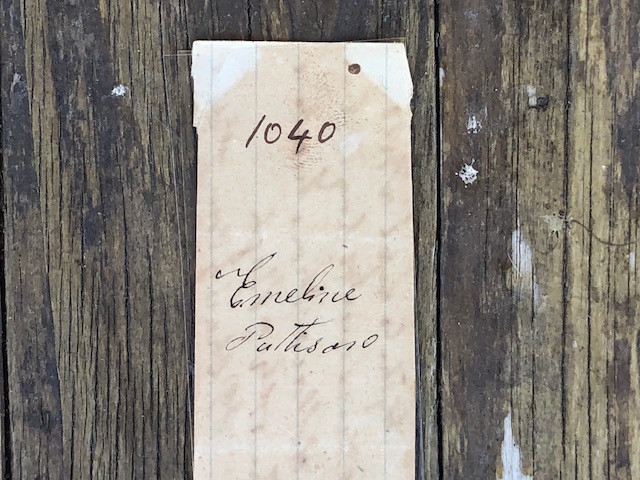 1040
Emeline
Pattison